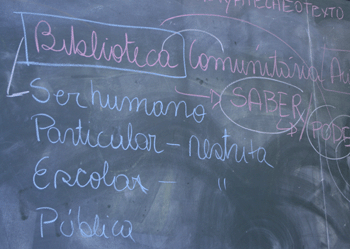 Biblioteca Comunitária
Ser humano → SABER → PODE
Particular - restrita
Escolar - "
Pública